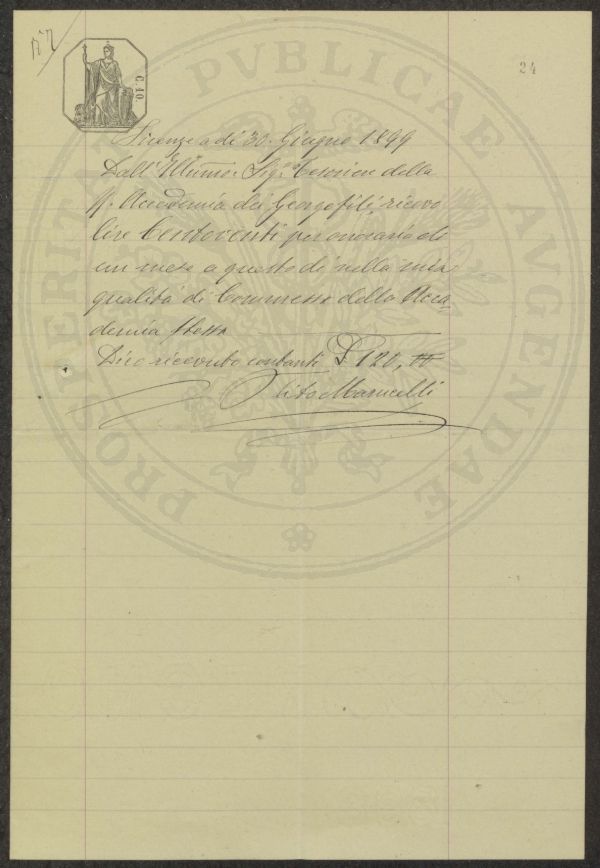 N° 7
24
C. 10.
PROSPERITATI PVBLICAE AVGENDAE
Firenze a dì 30 Giugno 1899
Dall' Illumo: Sigre Tesoriere della
R. Accademia dei Georgofili, ricevo
lire Centoventi per onorario di
un mese a questo dì nella mia
qualità di Commesso della Acca-
demia stessa
Dico ricevute contanti £ 120, "
Marucelli